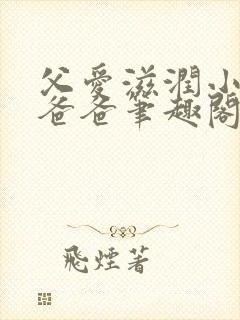 父愛滋潤小
爸爸筆趣閣
飛煙著